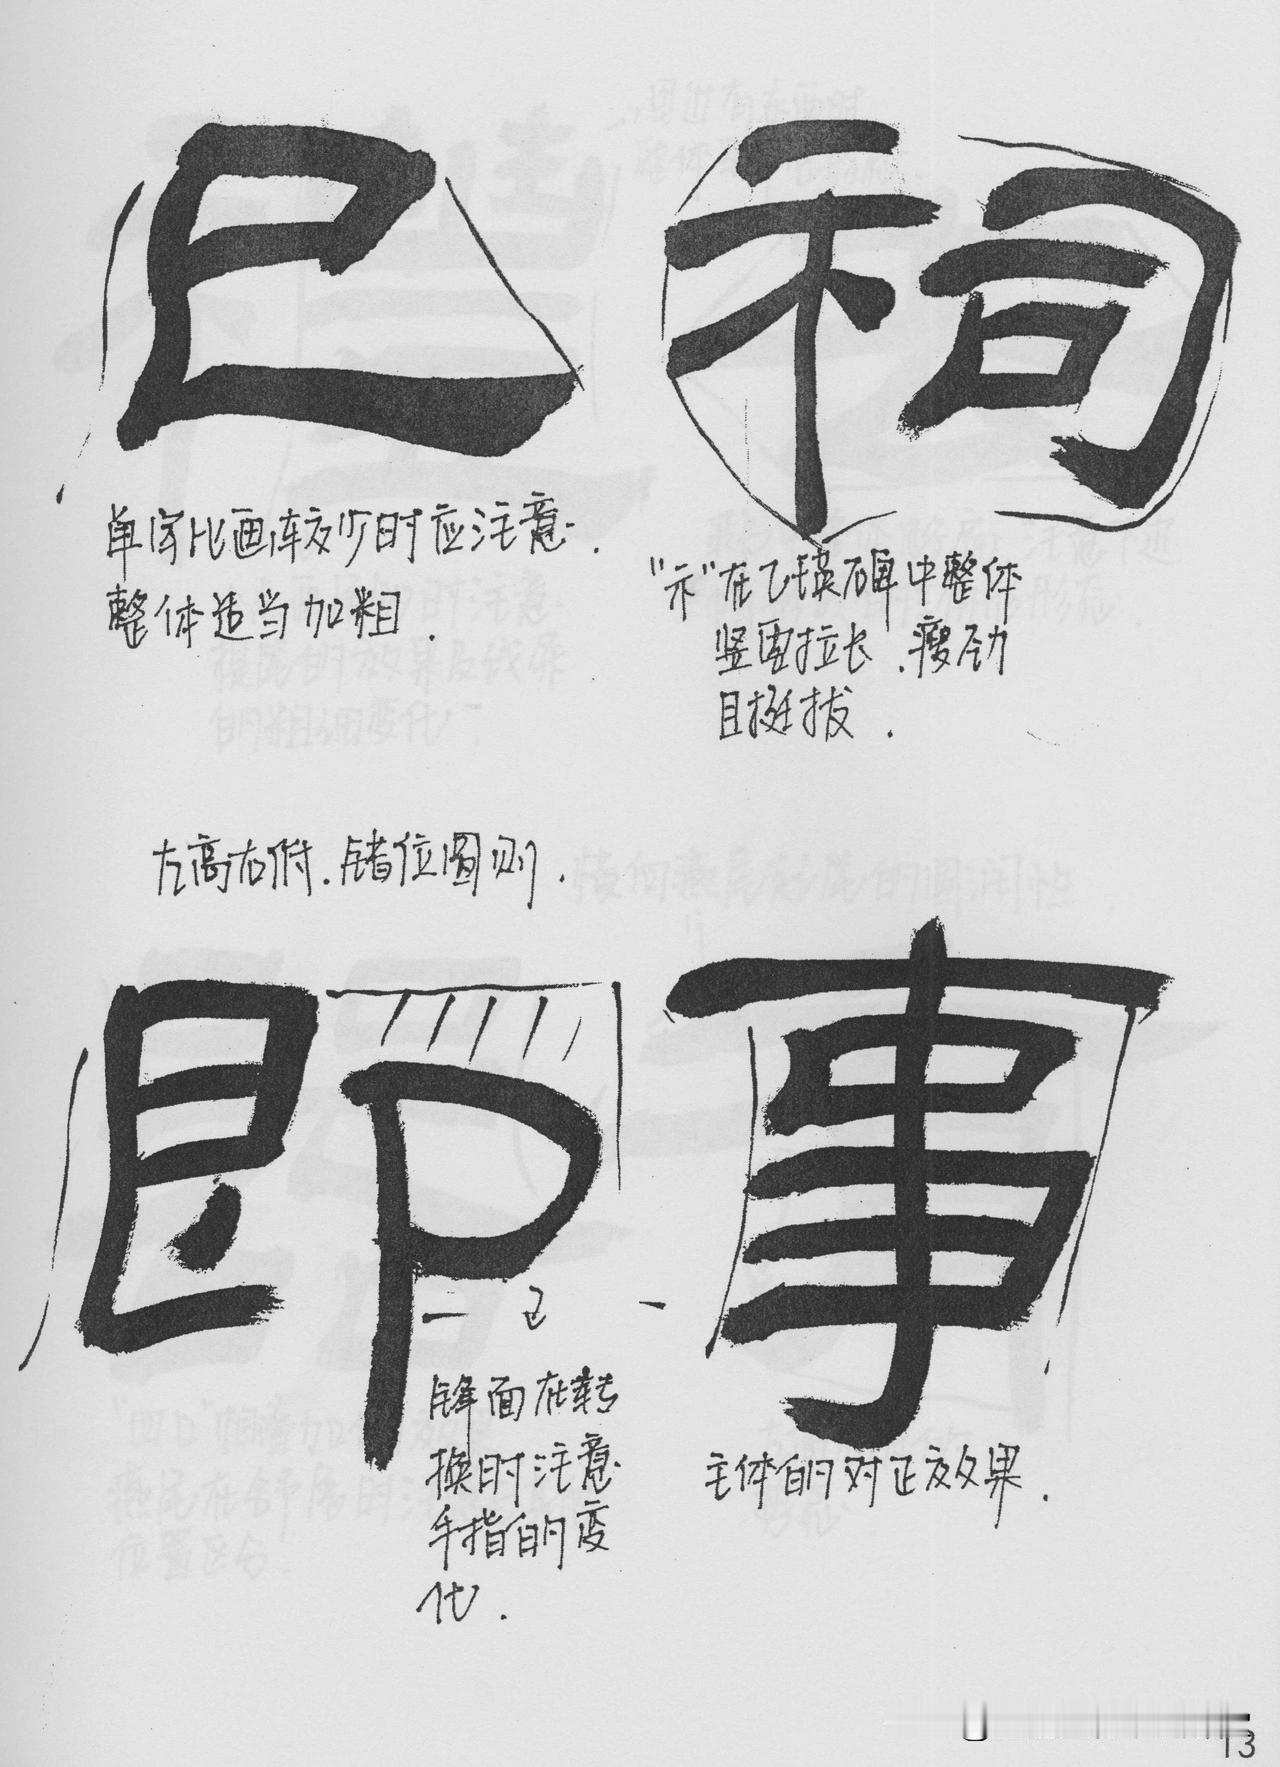 已 祠
单字比画较少时应注意.
整体适当加粗.
"示"在乙瑛碑中整体
竖画拉长.瘦劲
且挺拔.
左高右俯.错位圆则.
即 事
锋面在转
换时注意
手指的变
化.
主体的对正效果.
13